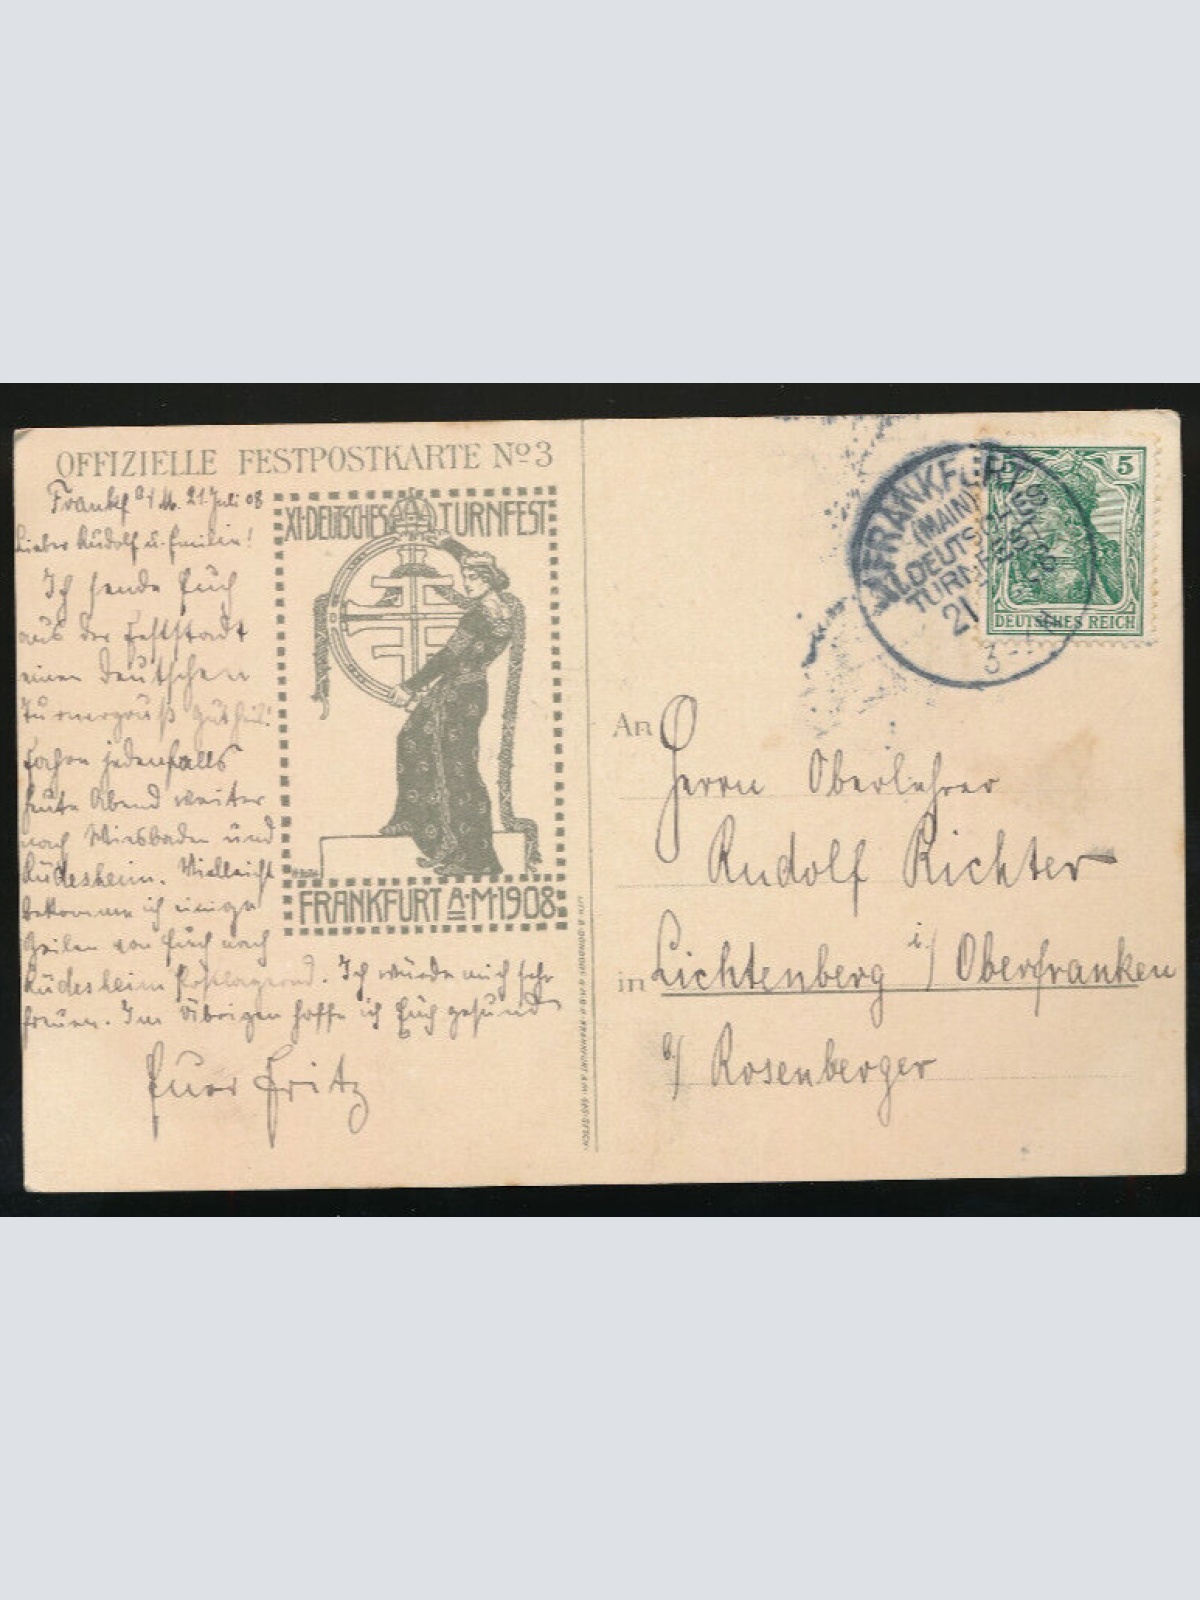 OFFIZIELLE FESTPOSTKARTE No 3
Frankf a/M. 21. Juli 08
Lieber Rudolf u. Emilie!
Ich sende Euch
aus der Feststadt
einen deutschen
Turnergruß Gut Heil!
Fahre jedenfalls
heute Abend weiter
nach Wiesbaden und
Rüdesheim. Vielleicht
bekomme ich einige
Zeilen von Euch nach
Rüdesheim postlagernd. Ich würde mich sehr
freuen. Im Übrigen hoffe ich Euch gesund
Euer Fritz
XI·DEUTSCHES TURNFEST
FRANKFURT A·M·1908
FRANKFURT
(MAIN)
XI.DEUTSCHES
TURNFEST
21
3-4
5
DEUTSCHES REICH
An
Herrn Oberlehrer
Rudolf Richter
in Lichtenberg i/ Oberfranken
b/ Rosenberger